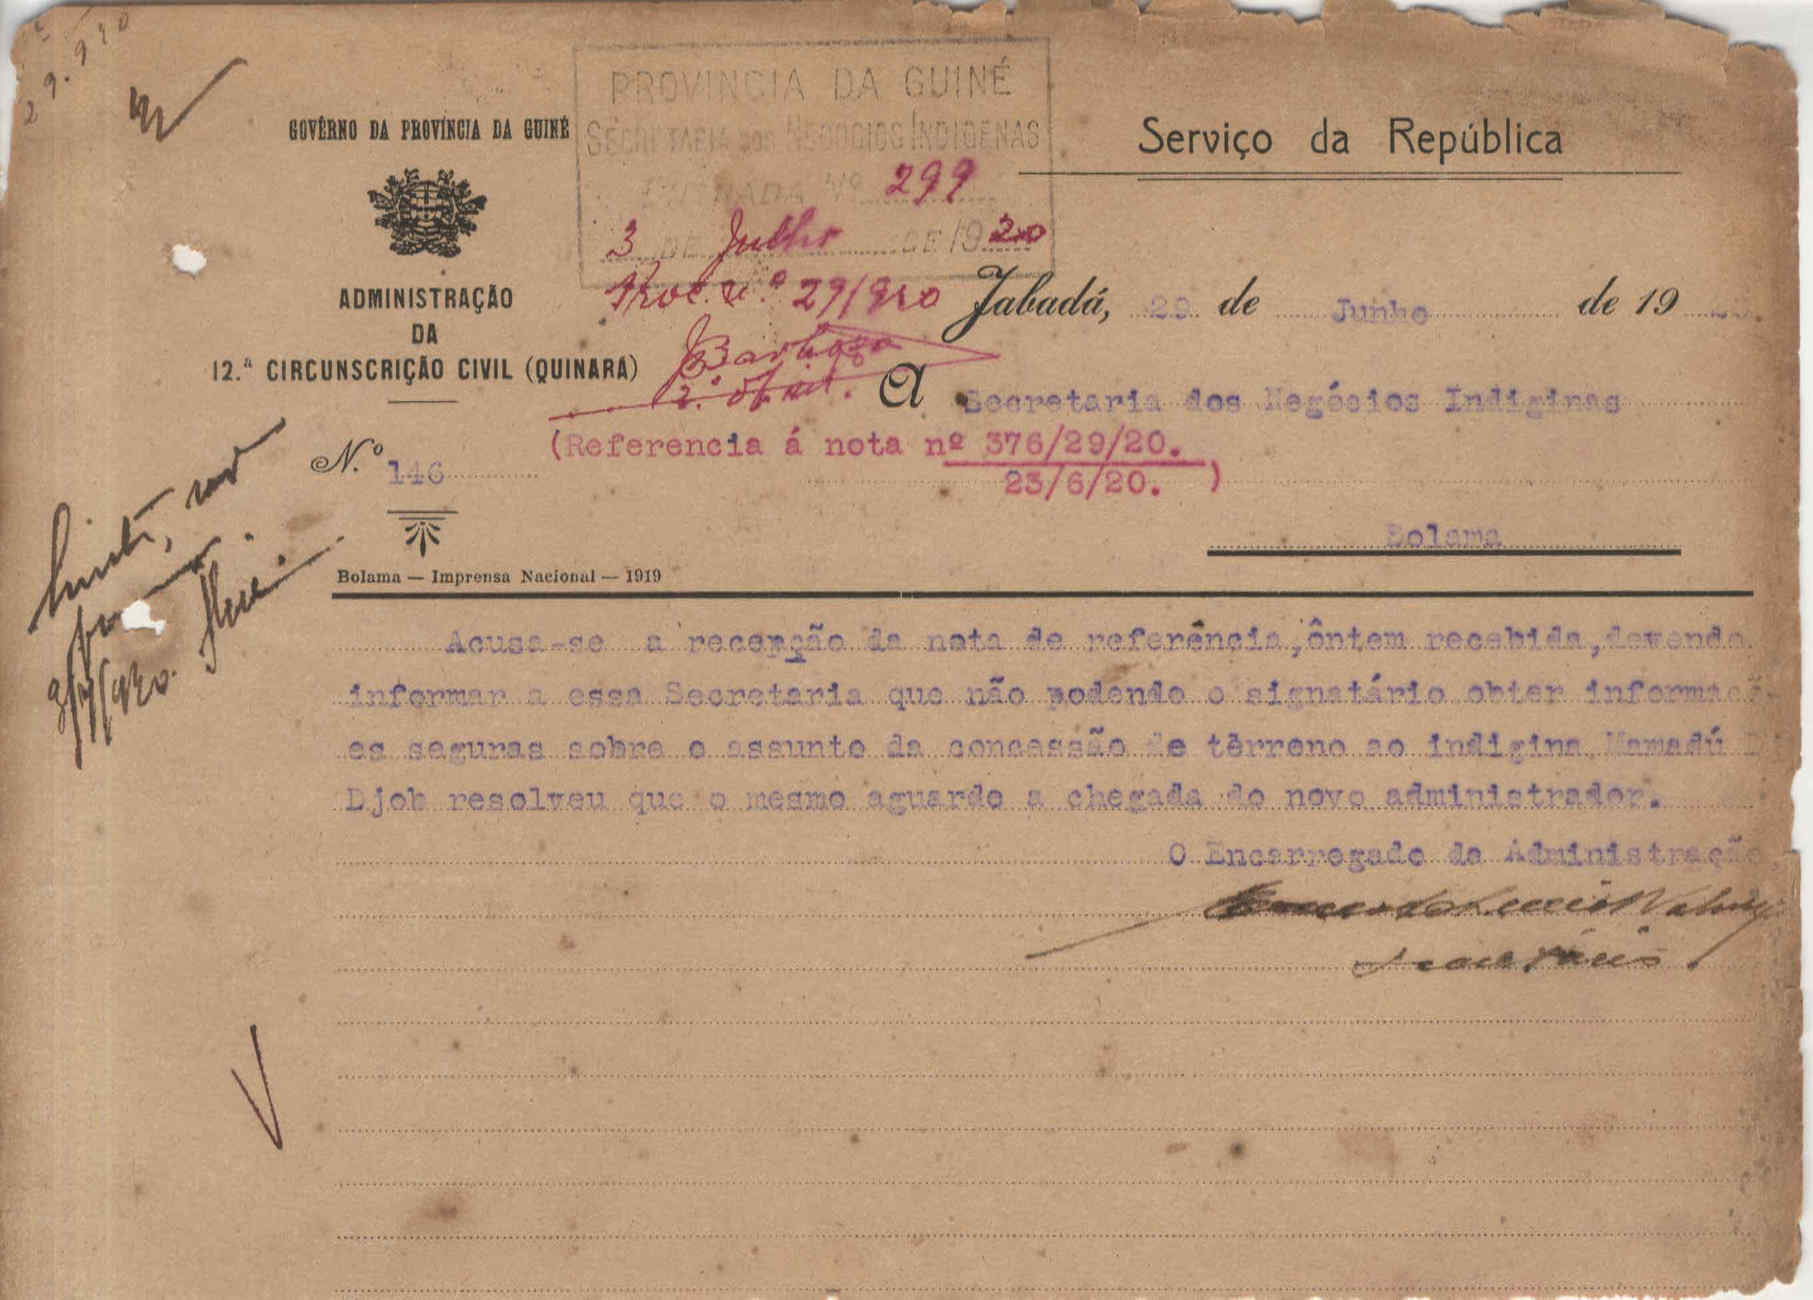 29.920
GOVÊRNO DA PROVÍNCIA DA GUINÉ
PROVINCIA DA GUINÉ
SECRETARIA DOS NEGOCIOS INDIGENAS
ENTRADA Nº 299
3 DE Julho DE 1920
Proc. nº 29/920
Barboza
2.º of.
Serviço da República
ADMINISTRAÇÃO
DA
12.ª CIRCUNSCRIÇÃO CIVIL (QUINARÁ)
Jabadá, 29 de Junho de 19 20
A Secretaria dos Negócios Indiginas
(Referencia á nota nº 376/29/20.
23/6/20. )
N.º 146
Bolama
Bolama — Imprensa Nacional — 1919
3/7/920.
Acusa-se a recepção da nota de referência, ôntem recebida, devendo
informar a essa Secretaria que não podendo o signatário obter informaçõ-
es seguras sobre o assunto da concessão de tèrreno ao indigina Mamadú D
Djob resolveu que o mesmo aguarde a chegada do novo administrador.
O Encarregado da Administração